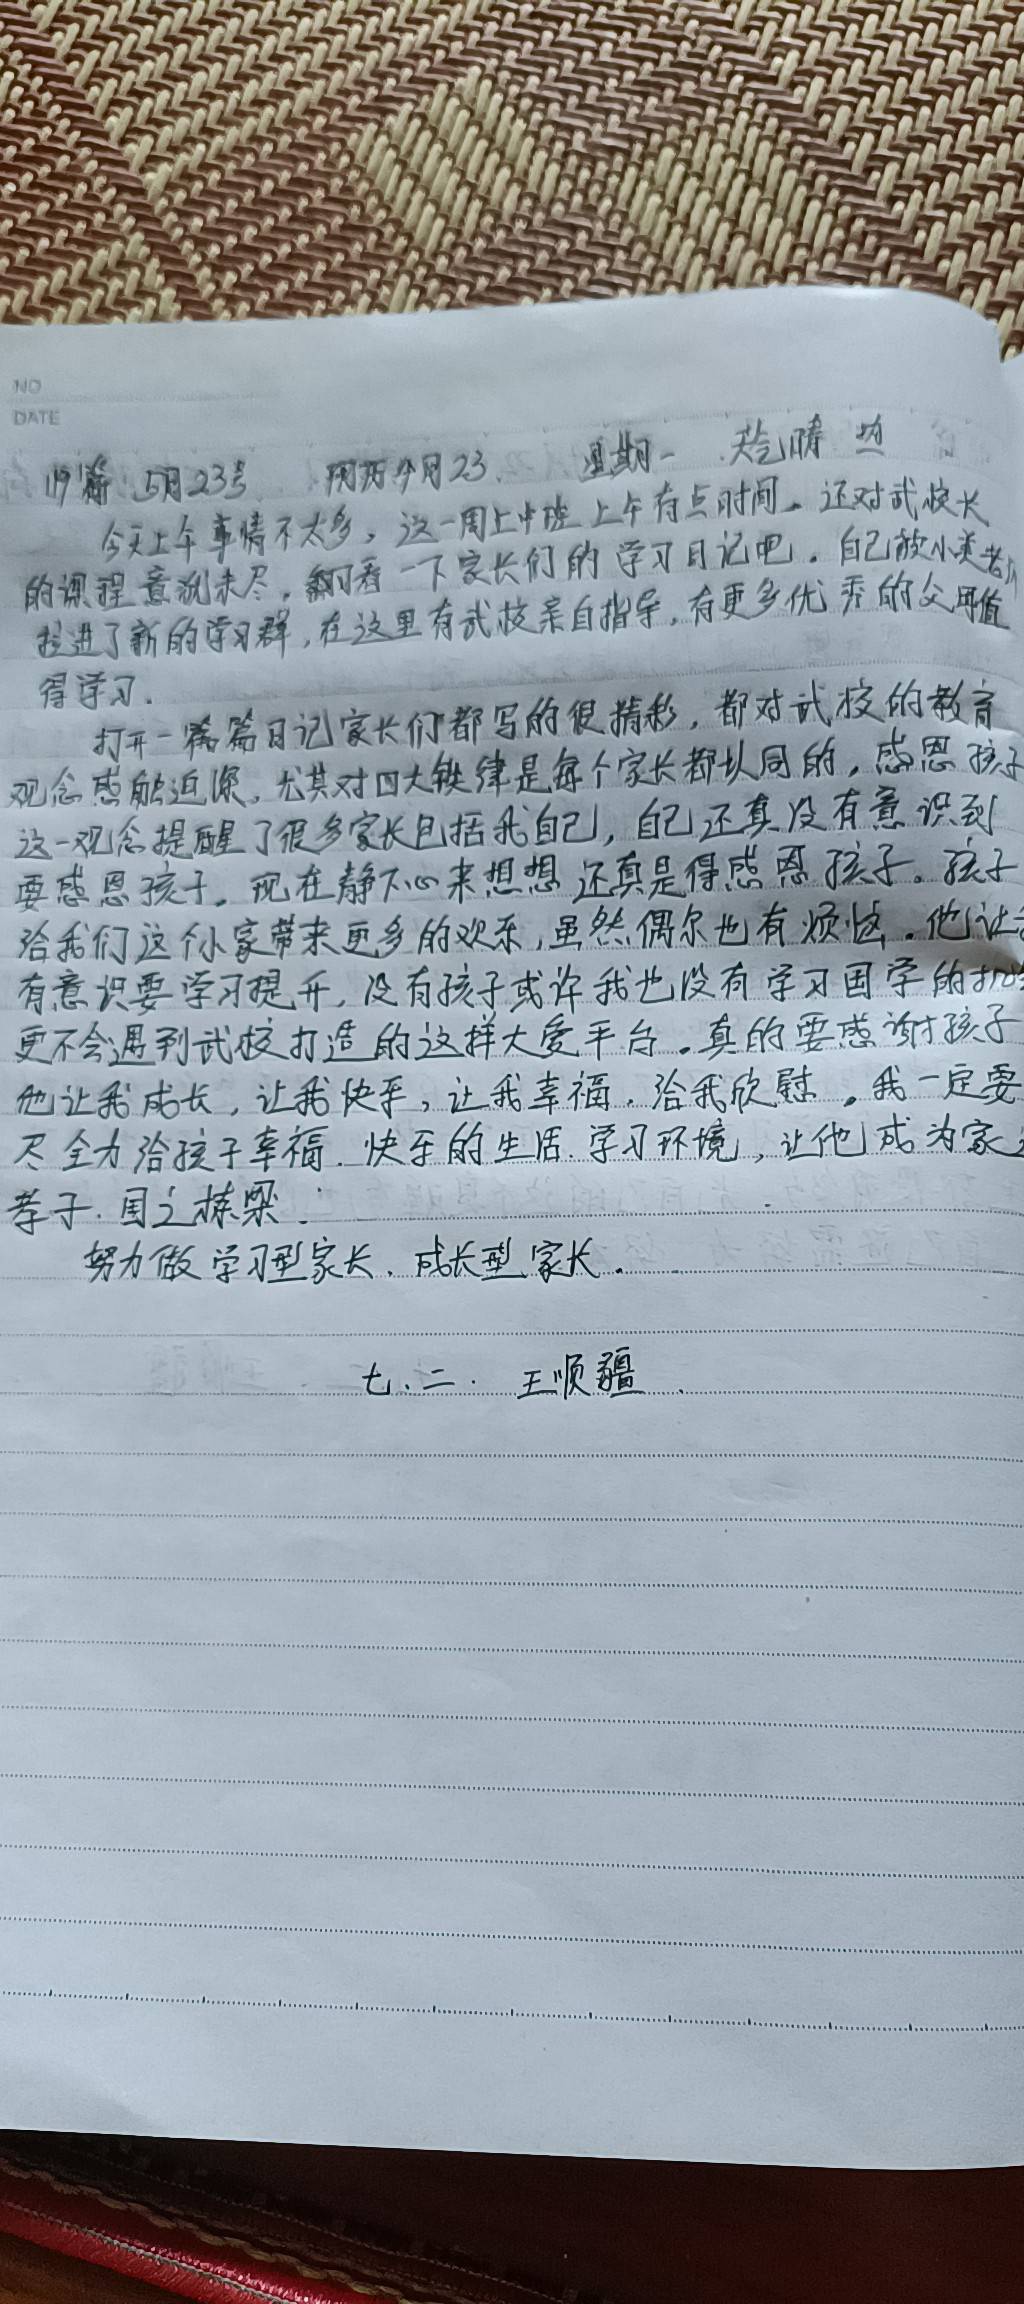 NO
DATE
19篇 5月23号 阴历4月23. 星期一 天气晴
今天上午事情不太多，这一周上中班上午有点时间。还对武校长
的课程意犹未尽，翻看一下家长们的学习日记吧。自己被小美老
拉进了新的学习群，在这里有武校亲自指导，有更多优秀的父母值
得学习.
打开一篇篇日记家长们都写的很精彩，都对武校的教育
观念感触迫深，尤其对四大铁律是每个家长都认同的，感恩孩子
这一观念提醒了很多家长包括我自己，自己还真没有意识到
要感恩孩子。现在静下心来想想还真是得感恩孩子。孩子
给我们这个小家带来更多的欢乐，虽然偶尔也有烦恼。他让
有意识要学习提升，没有孩子或许我也没有学习国学的
更不会遇到武校打造的这样大爱平台。真的要感谢孩子
他让我成长，让我快乐，让我幸福．给我欣慰。我一定要
尽全力给孩子幸福．快乐的生活．学习环境，让他成为家
孝子．国之栋梁．
努力做学习型家长、成长型家长．
七．二． 王顺疆．